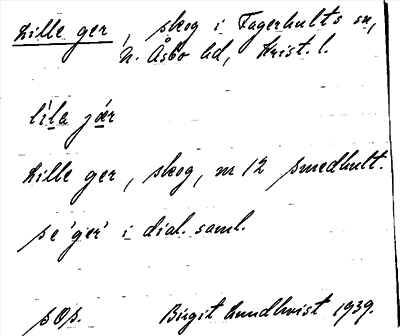 Lille ger, skog i Fagerhults sn,
N. Åsbo hd, Krist. l.
lila jär
Lille ger, skog, nr 12 Smedhult.
se 'ger' i dial. saml.
Birgit Lundkvist 1939.